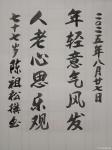 二〇二五年八月十七日
年轻意气风发
人老心思乐观
七十七岁陈祖松撰书